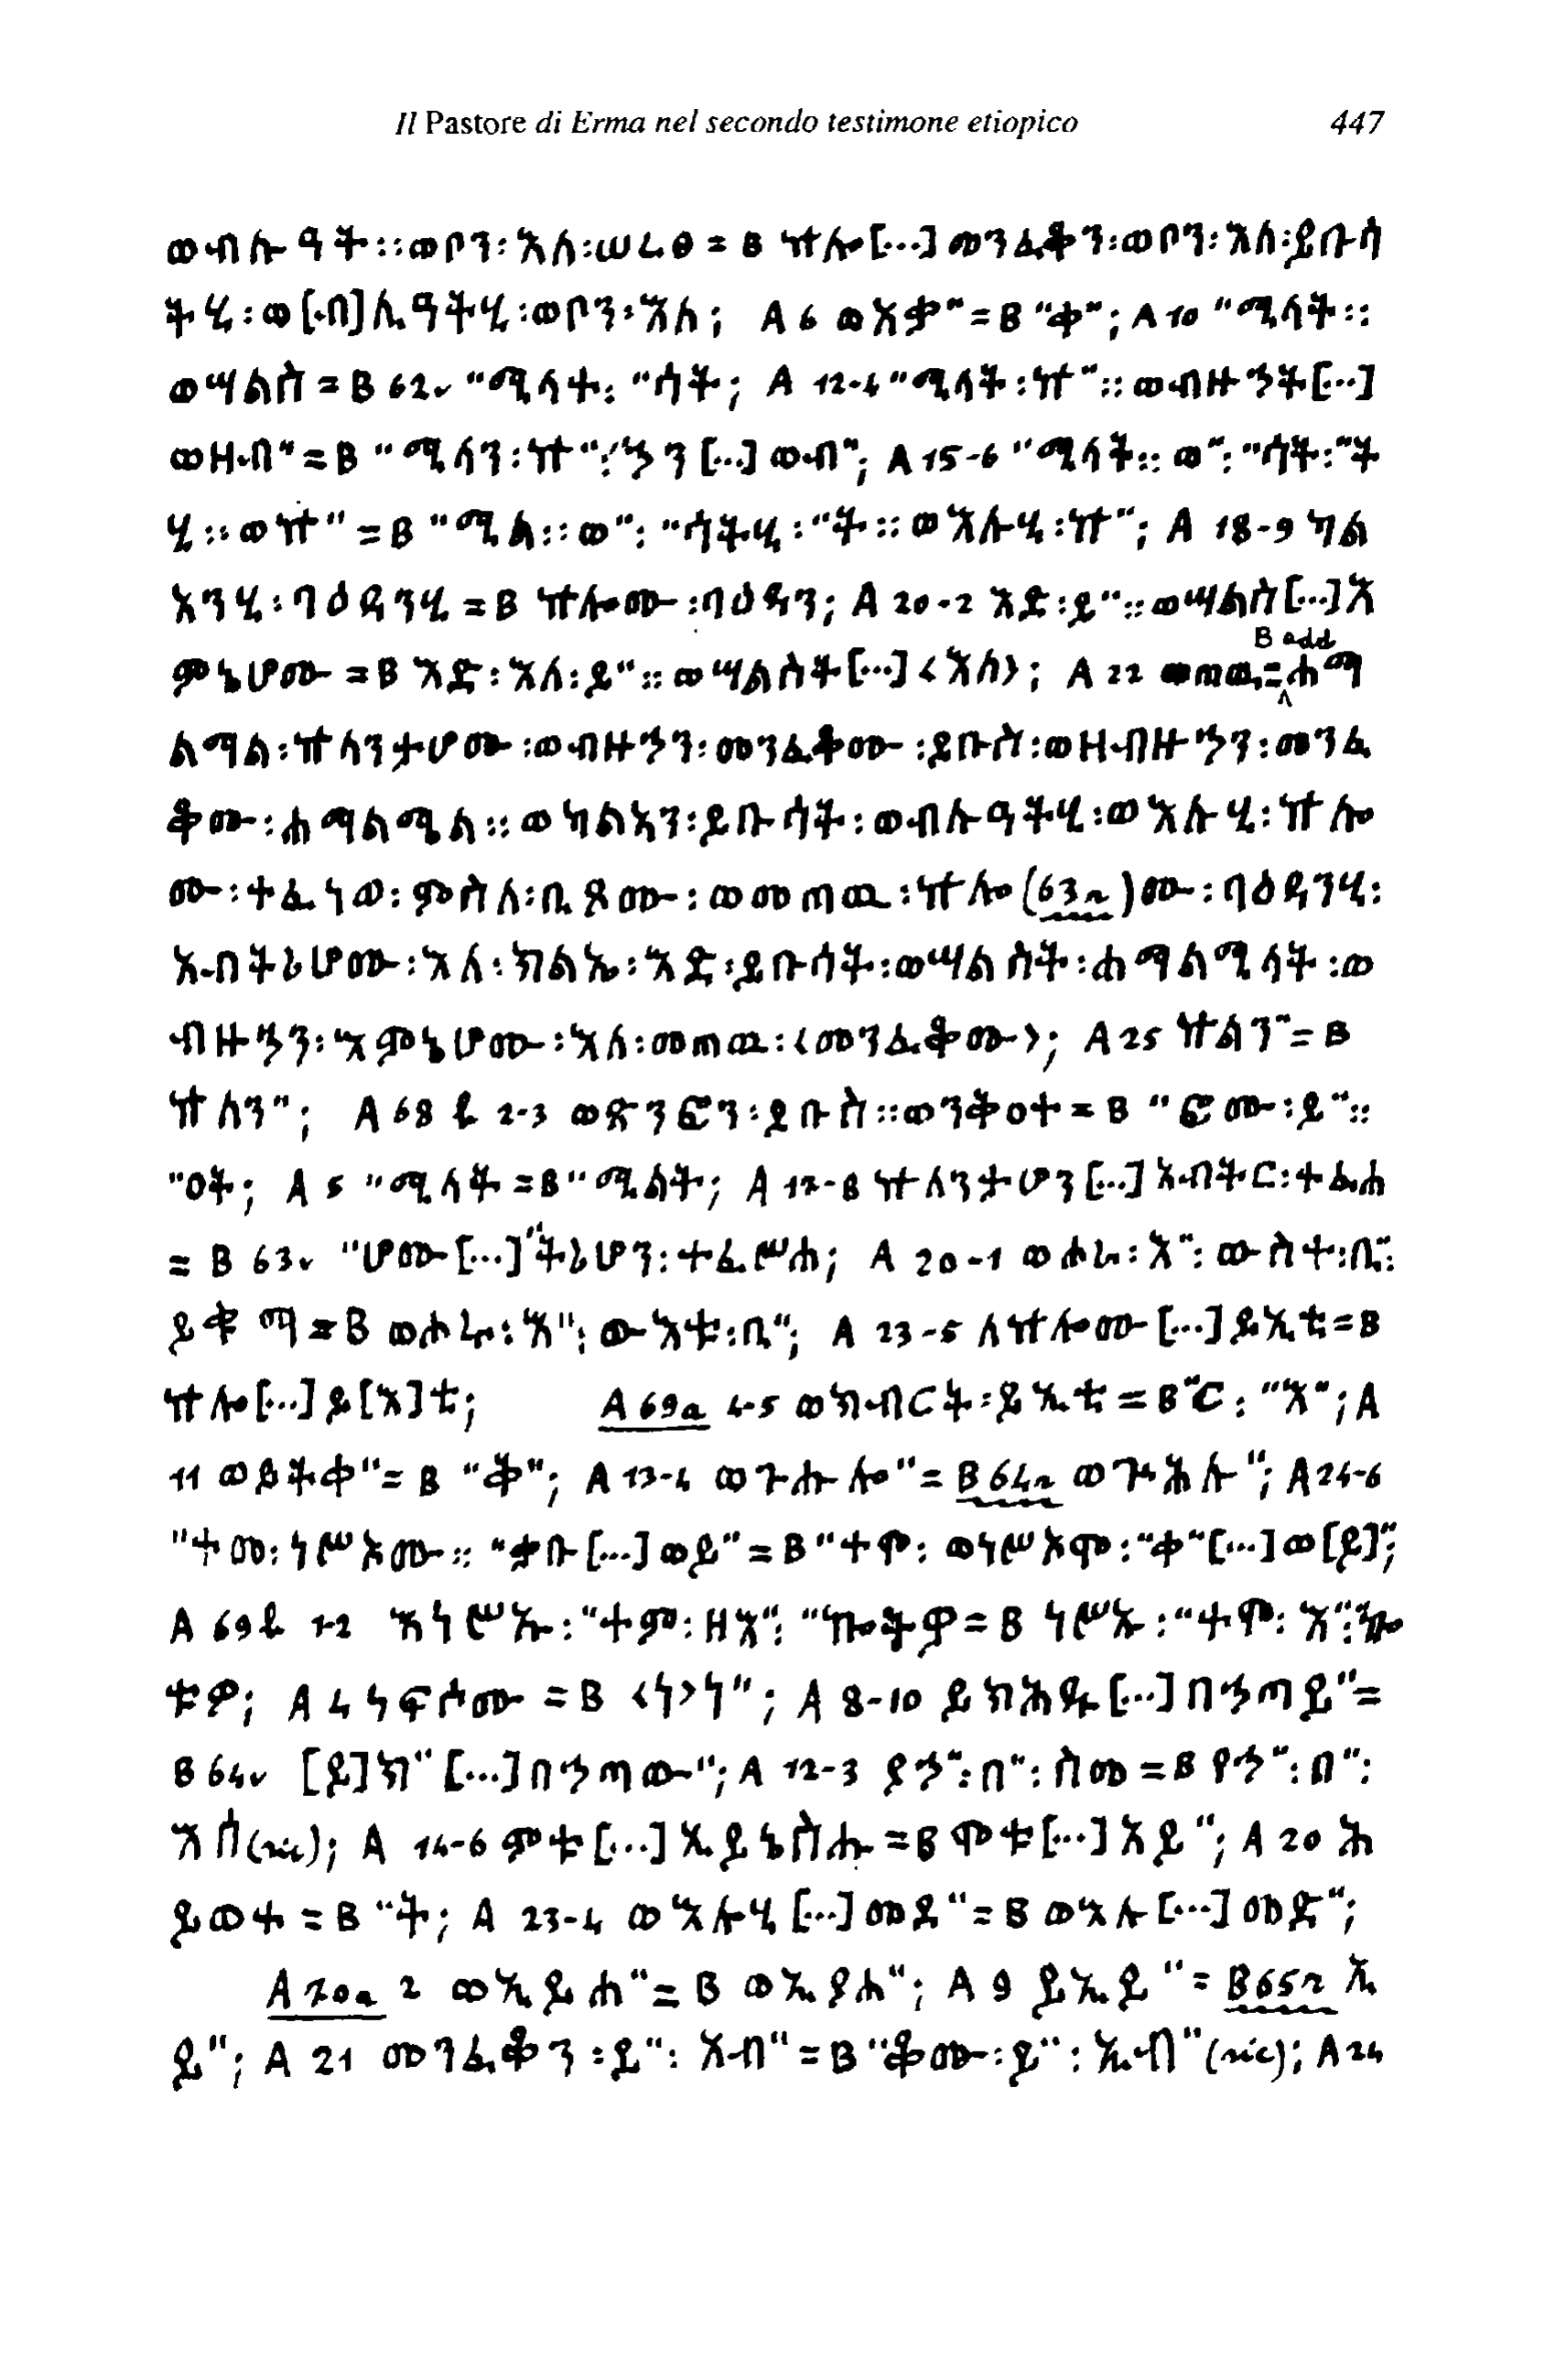 Il Pastore di Erma nel secondo testimone etiopico 447
ወብሉዓት::ወቦን:እለ:ሠረፀ = B ኵሎ[...] መንፈቆን:ወቦን:እለ:ይቡሳ
ትሂ:ወ[ብ]ሊዓትሂ:ወቦን:እለ; A 6 ወእቃ"=B "ቀ"; A 10 "ሚሳት::
ወሣልስ = B 62v "ሚሳት: "ሳት; A 12-4 "ሚሳት:ኵ":: ወብዙኃት[...]
ወዘብ"=B "ሚሳን:ኵ":ኃን [...] ወብ"; A 15-6 "ሚሳት:: ወ": "ሳት:"ት
ሂ::ወኵ" =B "ሚል::ወ": "ሳትሂ:"ት::ወእሉሂ:ኵ"; A 18-9 ካል
እንሂ:ባዕዳንሂ = B ኵሎሙ:ባዕዳን; A 20-2 እድ:ይ"::ወሣልስ[...]እ
ምኔሆሙ =B እድ:እለ:ይ"::ወሣልስት[...] <እለ>; A 22 መጠዉ= B add ሐማ
ልማል:ኵለንታሆሙ:ወብዙኃን:መንፈቆሙ:ይቡስ:ወዘብዙኃን:መንፈ
ቆሙ:ሐማልሚል::ወካልኣን:ይቡሳት:ወብሉዓትሂ:ወእሉሂ:ኵሎ
ሙ:ተፈነዉ:ምስለ:ቢጾሙ:ወመጠዉ:ኵሎ(63r)ሙ:ባዕዳንሂ:
አብትሪሆሙ:እለ:ክልኤ:እድ:ይቡሳት:ወሣልስት:ሐማልሚሳት:ወ
ብዙኃን:እምኔሆሙ:እለ:መጠዉ:<መንፈቆሙ>; A 25 ኵልን"= B
ኵለን"; A 68 b 2-3 ወጽንፎን:ይቡስ::ወንቅዐተ = B "ፎሙ:ይ"::
"ዐት; A 5 "ሚሳት =B "ሚልት; A 17-8 ኵለንታሆን[...] አብትር:ተፈሐ
= B 63v "ሆሙ[...]"ትሪሆን:ተፈሥሐ; A 20-1 ወሐራ:እ": ውስተ:ቢ":
ይቁማ=B ወሐራ:እ": ውእቱ:ቢ"; A 23-5 ለኵሎሙ[...]ይኢቲ=B
ኵሎ[...]ይ[እ]ቲ; A 69a 4-5 ወክብርት:ይኢቲ = B "ር: "እ"; A
11 ወይትቀ"= B "ቅ"; A 13-4 ወጉሑሎ"= B 64r ወጕሕሉ"; A 24-6
"ተመ:ነሥኦሙ:: "ቃቡ[...]ወይ"=B "ተሞ: ወነሥእሞ:"ቀ"[...]ወ[ይ]";
A 69b 1-2 እነሥኡ:"ተም:ዘእ": "ኰትዎ= B ነሥኡ:"ተሞ: እ":ኰ
ቱዎ; A 4 ነፍሶሙ = B <ነ>ነ"; A 8-10 ይክሕዱ[...]በኃጣይ"=
B 64v [ይ]ክ"[...]በኃጣው"; A 12-3 ያኃ":በ": ስመ =B የኃ":በ":
እስ(sic); A 14-6 ምቱ[...]ኢይኔስሑ =B ሞቱ[...]አይ"; A 20 ሕ
ይወተ = B "ት; A 23-4 ወእሉሂ[...]መይ"= B ወእሉ[...]መድ";
A 70a 2 ወኢይሐ"= B ወኢያሐ"; A 9 ይኢይ"= B 65r ኢ
ይ"; A 21 መንፈቆን:ይ": አብ"= B "ቆሙ:ይ": ኢብ"(sic); A 24